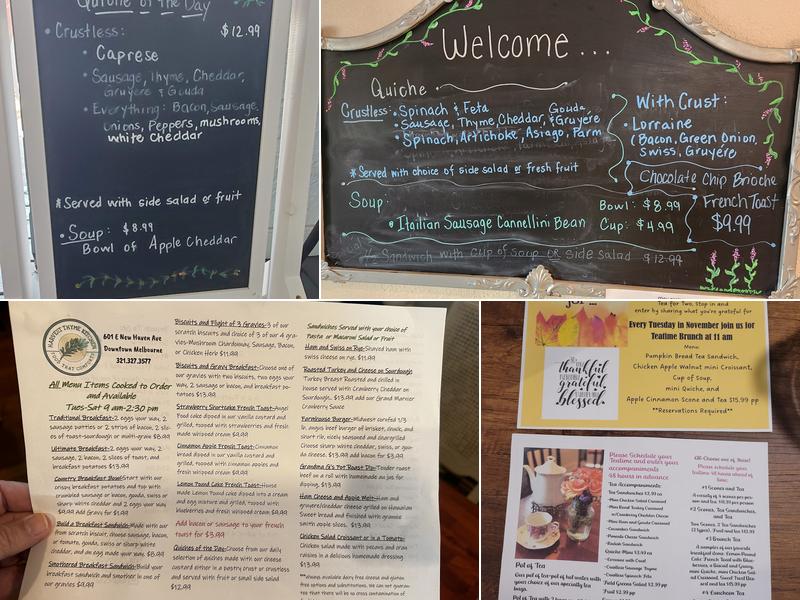 Quiche of the Day
• Crustless: $12.99
• Caprese
• Sausage, Thyme, Cheddar,
Gruyere & Gouda
• Everything: Bacon, Sausage,
onions, Peppers, mushrooms,
white Cheddar
*Served with side salad or fruit
• Soup: $8.99
Bowl of Apple Cheddar
Welcome...
Quiche
Crustless: • Spinach & Feta
• Sausage, Thyme, Cheddar, Gouda, & Gruyére
• Spinach, Artichoke, Asiago, Parm
*Served with choice of side salad or fresh fruit
With Crust:
• Lorraine
(Bacon, Green Onion,
Swiss, Gruyére
Chocolate Chip Brioche
French Toast
$9.99
Soup: Bowl: $8.99
• Itailian Sausage Cannellini Bean Cup: $4.99
1/2 Sandwich with Cup of Soup OR Side salad $12.99
HARVEST THYME KITCHEN
601 E New Haven Ave
Downtown Melbourne
321.327.3577
All Menu Items Cooked to Order
and Available
Tues-Sat 9 am-2:30 pm
Traditional Breakfast-2 eggs your way, 2
sausage patties or 2 strips of bacon, 2 slic-
es of toast-sourdough or multi-grain $8.99
Ultimate Breakfast-2 eggs your way, 2
sausage, 2 bacon, 2 slices of toast, and
breakfast potatoes $13.99
Country Breakfast Bowl-Start with our
crispy breakfast potatoes and top with
crumbled sausage or bacon, gouda, swiss or
sharp white cheddar and 2 eggs your way
$9.99 Add Gravy for $1.99
Build a Breakfast Sandwich-Made with our
from scratch biscuit, choose sausage, bacon,
or tomato, gouda, swiss or sharp white
cheddar, and an egg made your way. $8.99
Smothered Breakfast Sandwich-Build your
breakfast sandwich and smother in one of
our gravies $9.99
Biscuits and Flight of 3 Gravies-3 of our
scratch biscuits and choice of 3 of our 4 gra-
vies-Mushroom Chardonnay, Sausage, Bacon,
or Chicken Herb $11.99
Biscuits and Gravy Breakfast-Choose one of
our gravies with two biscuits, two eggs your
way, 2 sausage or bacon, and breakfast po-
tatoes $13.99
Strawberry Shortcake French Toast-Angel
Food cake dipped in our vanilla custard and
grilled, topped with strawberries and fresh
made whipped cream $9.99
Cinnamon Apple French Toast-Cinnamon
bread dipped in our vanilla custard and
grilled, topped with cinnamon apples and
fresh whipped cream $9.99
Lemon Pound Cake French Toast-House
made Lemon Pound cake dipped to a cream
and egg mixture and grilled, topped with
blueberries and fresh whipped cream $9.99
Add bacon or sausage to your french
toast for $3.99
Quiches of the Day-Choose from our daily
selection of quiches made with our cheese
custard either in a pastry crust or crustless
and served with fruit or small side salad
$12.99
Sandwiches Served with your choice of
Pasta or Macaroni Salad or Fruit
Ham and Swiss on Rye-Shaved ham with
swiss cheese on rye. $11.99
Roasted Turkey and Cheese on Sourdough-
Turkey Breast Roasted and chilled in
house served with Cranberry Cheddar on
Sourdough.. $13.99 add our Grand Marnier
Cranberry Sauce
Farmhouse Burger-Midwest cornfed 1/3
lb. angus beef burger of brisket, chuck, and
short rib, nicely seasoned and chargrilled
Choose sharp white cheddar, swiss, or gou-
da cheese. $13.99 add bacon for $3.99
Grandma G's Pot Roast Dip-Tender roast
beef on a roll with homemade au jus for
dipping. $13.99
Ham Cheese and Apple Melt-Ham and
gruyere/cheddar cheese grilled on Hawaiian
Sweet bread and finished with granny
smith apple slices. $13.99
Chicken Salad Croissant or in a Tomato-
Chicken salad made with pecans and cran-
raisins in a delicious homemade dressing
$13.99
*Always available dairy free cheese and gluten
free options and substitutions. We can not guaran-
tee that there will be no cross contamination of
Tea for Two. Stop in and
enter by sharing what you're grateful for
Every Tuesday in November join us for
Teatime Brunch at 11 am
Menu:
Pumpkin Bread Tea Sandwich,
Chicken Apple Walnut mini Croissant,
Cup of Soup,
mini Quiche, and
Apple Cinnamon Scone and Tea $15.99 pp
**Reservations Required**
thankful
grateful
blessed.
Please Schedule your
Teatime and order your
accompaniments
48 hours in advance
Tea Accompaniments:
Tea Sandwiches $2.99 ea
Field Greens Salad $2.99 pp
Fruit $2.99 pp
Pot of Tea
OR Choose one of These!
Please schedule
Teatime 48 hours
ahead of time.
#1 Scones and Tea
#2 Scones, Tea Sandwiches,
and Tea
#3 Brunch Tea
#4 Luncheon Tea